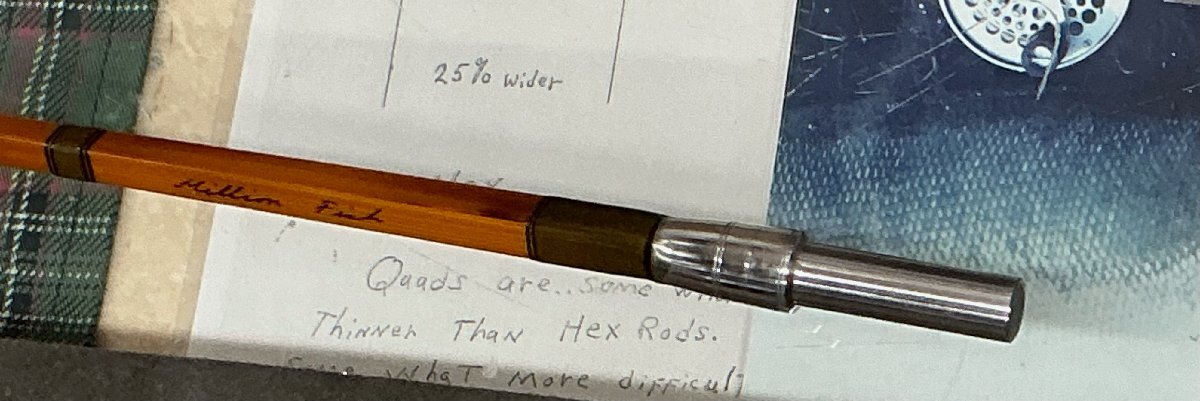 25% wider
Million Fish
Quads are.. some
Thinner Than Hex Rods.
Some whaT more difficulT